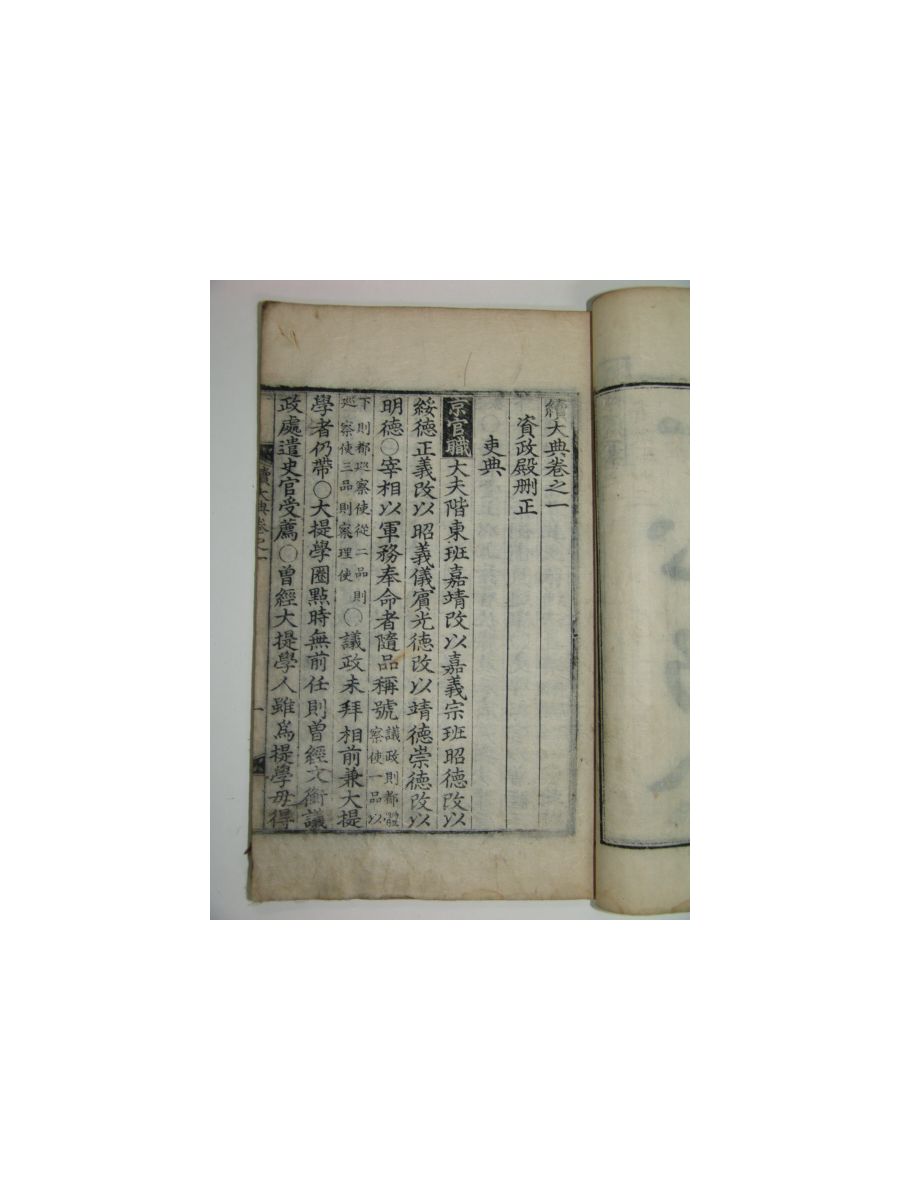 續大典卷之一
資政殿刪正
吏典
京官職大夫階東班嘉靖改以嘉義宗班昭德改以
綏德正義改以昭義儀賓光德改以靖德崇德改以
明德○宰相以軍務奉命者隨品稱號議政則都體察使一品以
下則都巡察使從二品則巡察使三品則察理使○議政未拜相前兼大提
學者仍帶○大提學圈點時無前任則曾經文衡議
政處遣史官受薦○曾經大提學人雖爲提學毋得
續大典卷之一
一